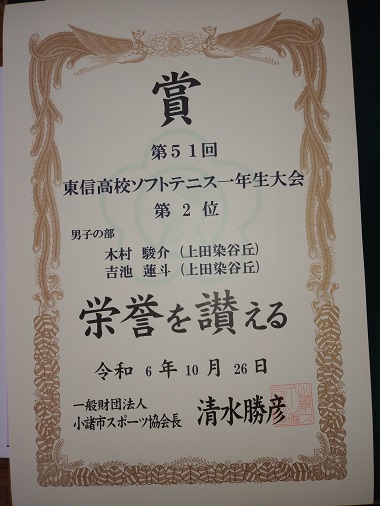 賞
第51回
東信高校ソフトテニス一年生大会
第2位
男子の部
木村 駿介(上田染谷丘)
吉池 蓮斗(上田染谷丘)
栄誉を讃える
令和 6年 10月 26日
一般財団法人
小諸市スポーツ協会長 清水勝彦